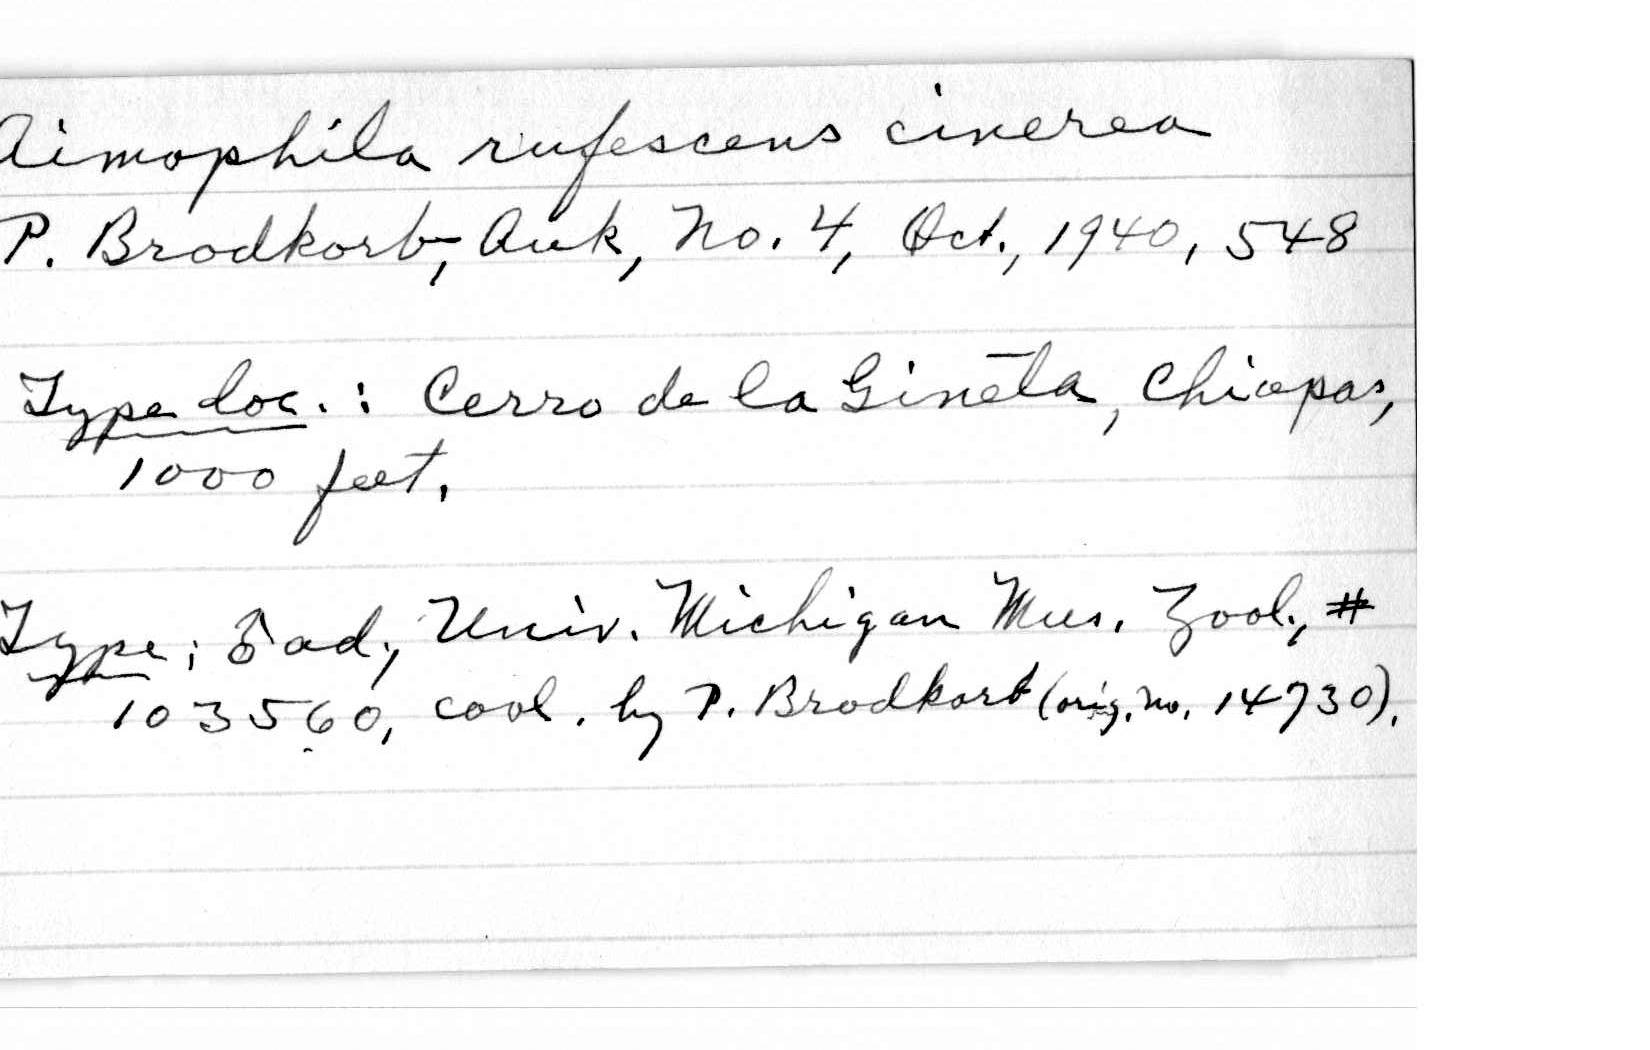 Aimophila rufescens cinerea
P. Brodkorb, Auk, No. 4, Oct., 1940, 548
Type loc. : Cerro de la Gineta, Chiapas,
1000 feet.
Type; ♂ ad., Univ. Michigan Mus. Zool., #
103560, cool. by P. Brodkorb (orig. no. 14730).